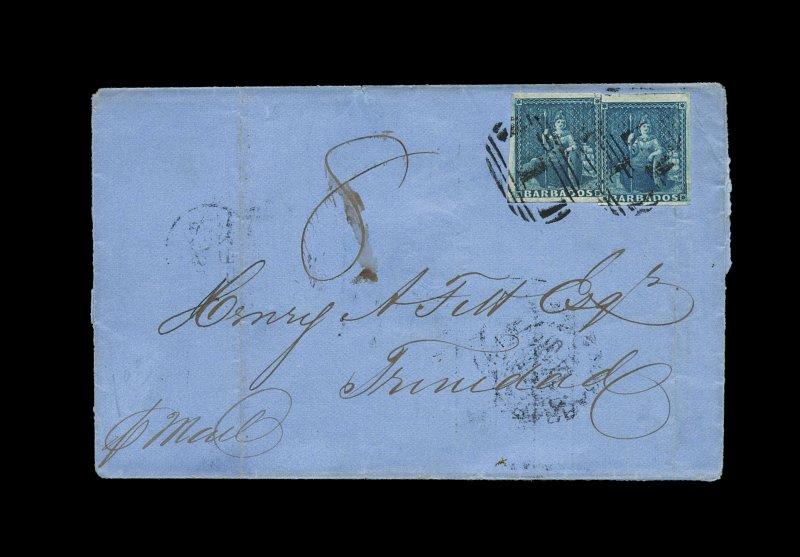 BARBADOS BARBADOS
8
Henry A Fitt Esqr
Trinidad
℘ Mail